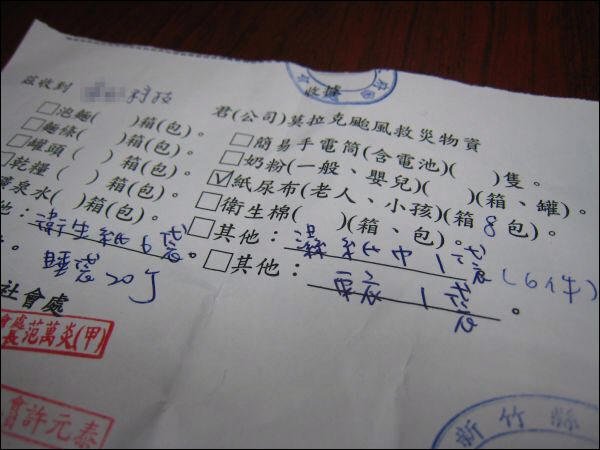 收據
茲收到 科技 君(公司)莫拉克颱風救災物資
□泡麵( )箱(包)。 □簡易手電筒(含電池)( )隻。
□麵條( )箱(包)。 □奶粉(一般、嬰兒)( )(箱、罐)。
□罐頭( )箱(包)。 ☑紙尿布(老人、小孩)(箱 8 包)。
乾糧( )箱(包)。 □衛生棉( )(箱、包)。
礦泉水( )箱(包)。 □其他:濕紙巾 1 袋 (6件)
他:衛生紙 6 袋。 □其他: 1 袋。
睡袋 20 个
社會處
會處長范萬炎(甲)
許元泰
新竹縣